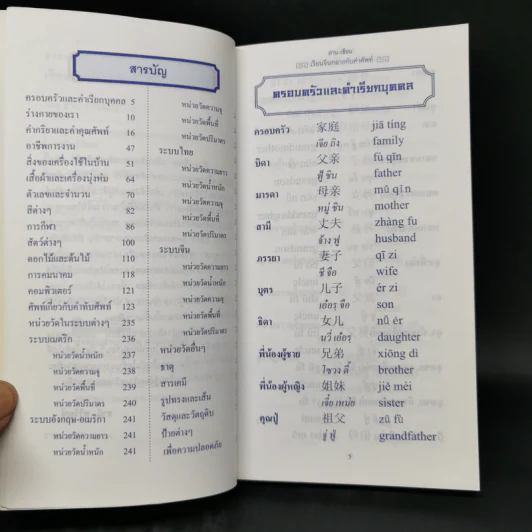 สารบัญ
ครอบครัวและคำเรียกบุคคล 5
ร่างกายของเรา 10
คำกริยาและคำคุณศัพท์ 16
อาชีพการงาน 47
สิ่งของเครื่องใช้ในบ้าน 51
เสื้อผ้าและเครื่องนุ่งห่ม 64
ตัวเลขและจำนวน 70
สีต่างๆ 82
การกีฬา 86
สัตว์ต่างๆ 100
ดอกไม้และต้นไม้ 110
การคมนาคม 118
คอมพิวเตอร์ 121
ศัพท์เกี่ยวกับคำทับศัพท์ 123
หน่วยวัดในระบบต่างๆ 235
ระบบเมตริก 236
หน่วยวัดน้ำหนัก 237
หน่วยวัดความจุ 238
หน่วยวัดพื้นที่ 239
หน่วยวัดปริมาตร 240
ระบบอังกฤษ-อเมริกา 241
หน่วยวัดความยาว 241
หน่วยวัดน้ำหนัก 241
หน่วยวัดความจุ
หน่วยวัดพื้นที่
หน่วยวัดปริมาตร
ระบบไทย
หน่วยวัดความยาว
หน่วยวัดน้ำหนัก
หน่วยวัดความจุ
หน่วยวัดพื้นที่
หน่วยวัดปริมาตร
ระบบจีน
หน่วยวัดความยาว
หน่วยวัดน้ำหนัก
หน่วยวัดความจุ
หน่วยวัดพื้นที่
หน่วยวัดปริมาตร
หน่วยวัดอื่นๆ
ธาตุ
สารเคมี
รูปทรงและเส้น
วัสดุและวัตถุดิบ
ป้ายต่างๆ
เพื่อความปลอดภัย
อ่าน เขียน
เรียนจีนกลางกับคำศัพท์
ครอบครัวและคำเรียกบุคคล
ครอบครัว 家庭 jiā tíng
เจีย ถิง family
บิดา 父亲 fù qīn
ฟู่ ชิน father
มารดา 母亲 mǔ qīn
หมู่ ชิน mother
สามี 丈夫 zhàng fu
จ้าง ฟู husband
ภรรยา 妻子 qī zi
ชี จือ wife
บุตร 儿子 ér zi
เอ๋อร จือ son
ธิดา 女儿 nǚ ér
หนวี่ เอ๋อร daughter
พี่น้องผู้ชาย 兄弟 xiōng dì
โซวง ตี้ brother
พี่น้องผู้หญิง 姐妹 jiě mèi
เจี่ย เหม่ย sister
คุณปู่ 祖父 zǔ fù
จู่ ฟู่ grandfather
5